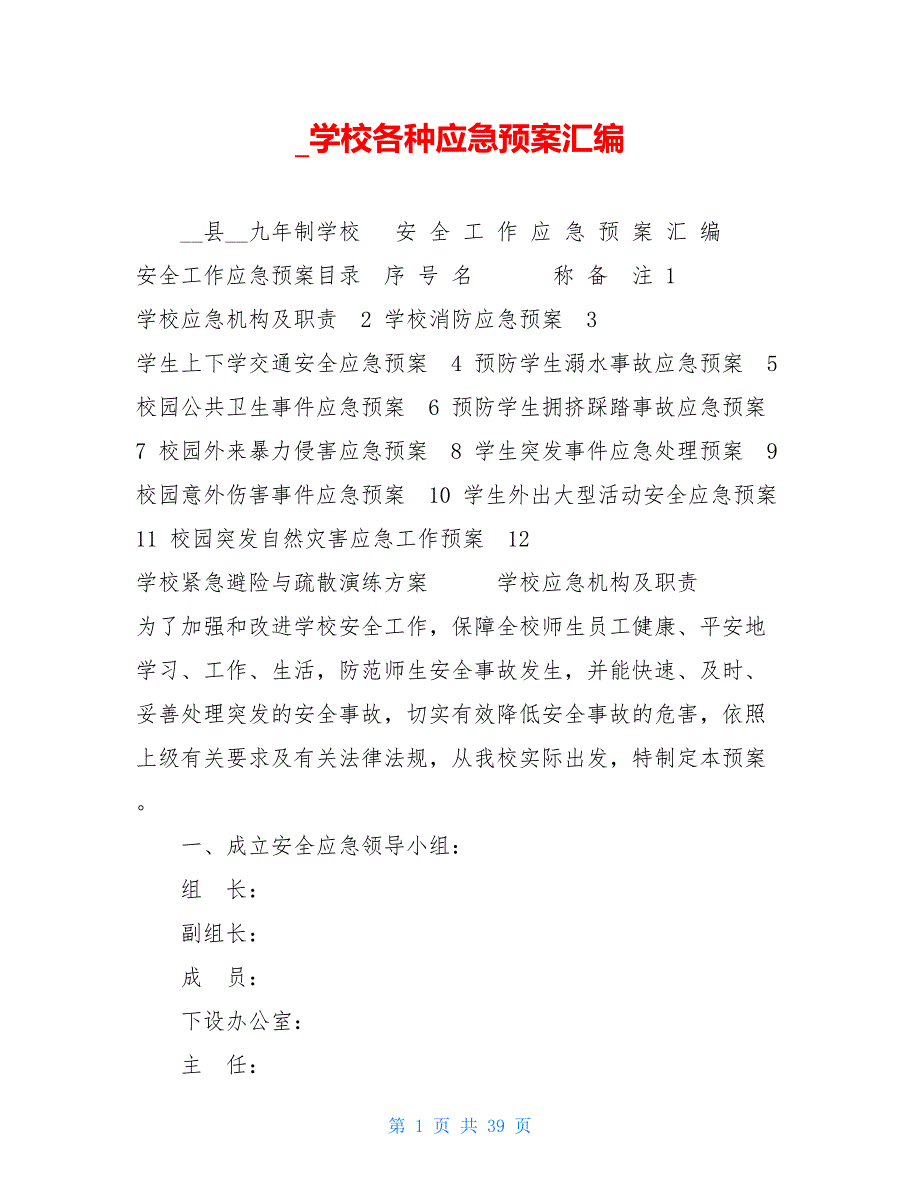 _学校各种应急预案汇编
__县__九年制学校 安 全 工 作 应 急 预 案 汇 编
安全工作应急预案目录 序 号 名 称 备 注 1
学校应急机构及职责 2 学校消防应急预案 3
学生上下学交通安全应急预案 4 预防学生溺水事故应急预案 5
校园公共卫生事件应急预案 6 预防学生拥挤踩踏事故应急预案
7 校园外来暴力侵害应急预案 8 学生突发事件应急处理预案 9
校园意外伤害事件应急预案 10 学生外出大型活动安全应急预案
11 校园突发自然灾害应急工作预案 12
学校紧急避险与疏散演练方案 学校应急机构及职责
为了加强和改进学校安全工作，保障全校师生员工健康、平安地
学习、工作、生活，防范师生安全事故发生，并能快速、及时、
妥善处理突发的安全事故，切实有效降低安全事故的危害，依照
上级有关要求及有关法律法规，从我校实际出发，特制定本预案
。
一、成立安全应急领导小组：
组 长：
副组长：
成 员：
下设办公室：
主 任：
第 1 页 共 39 页